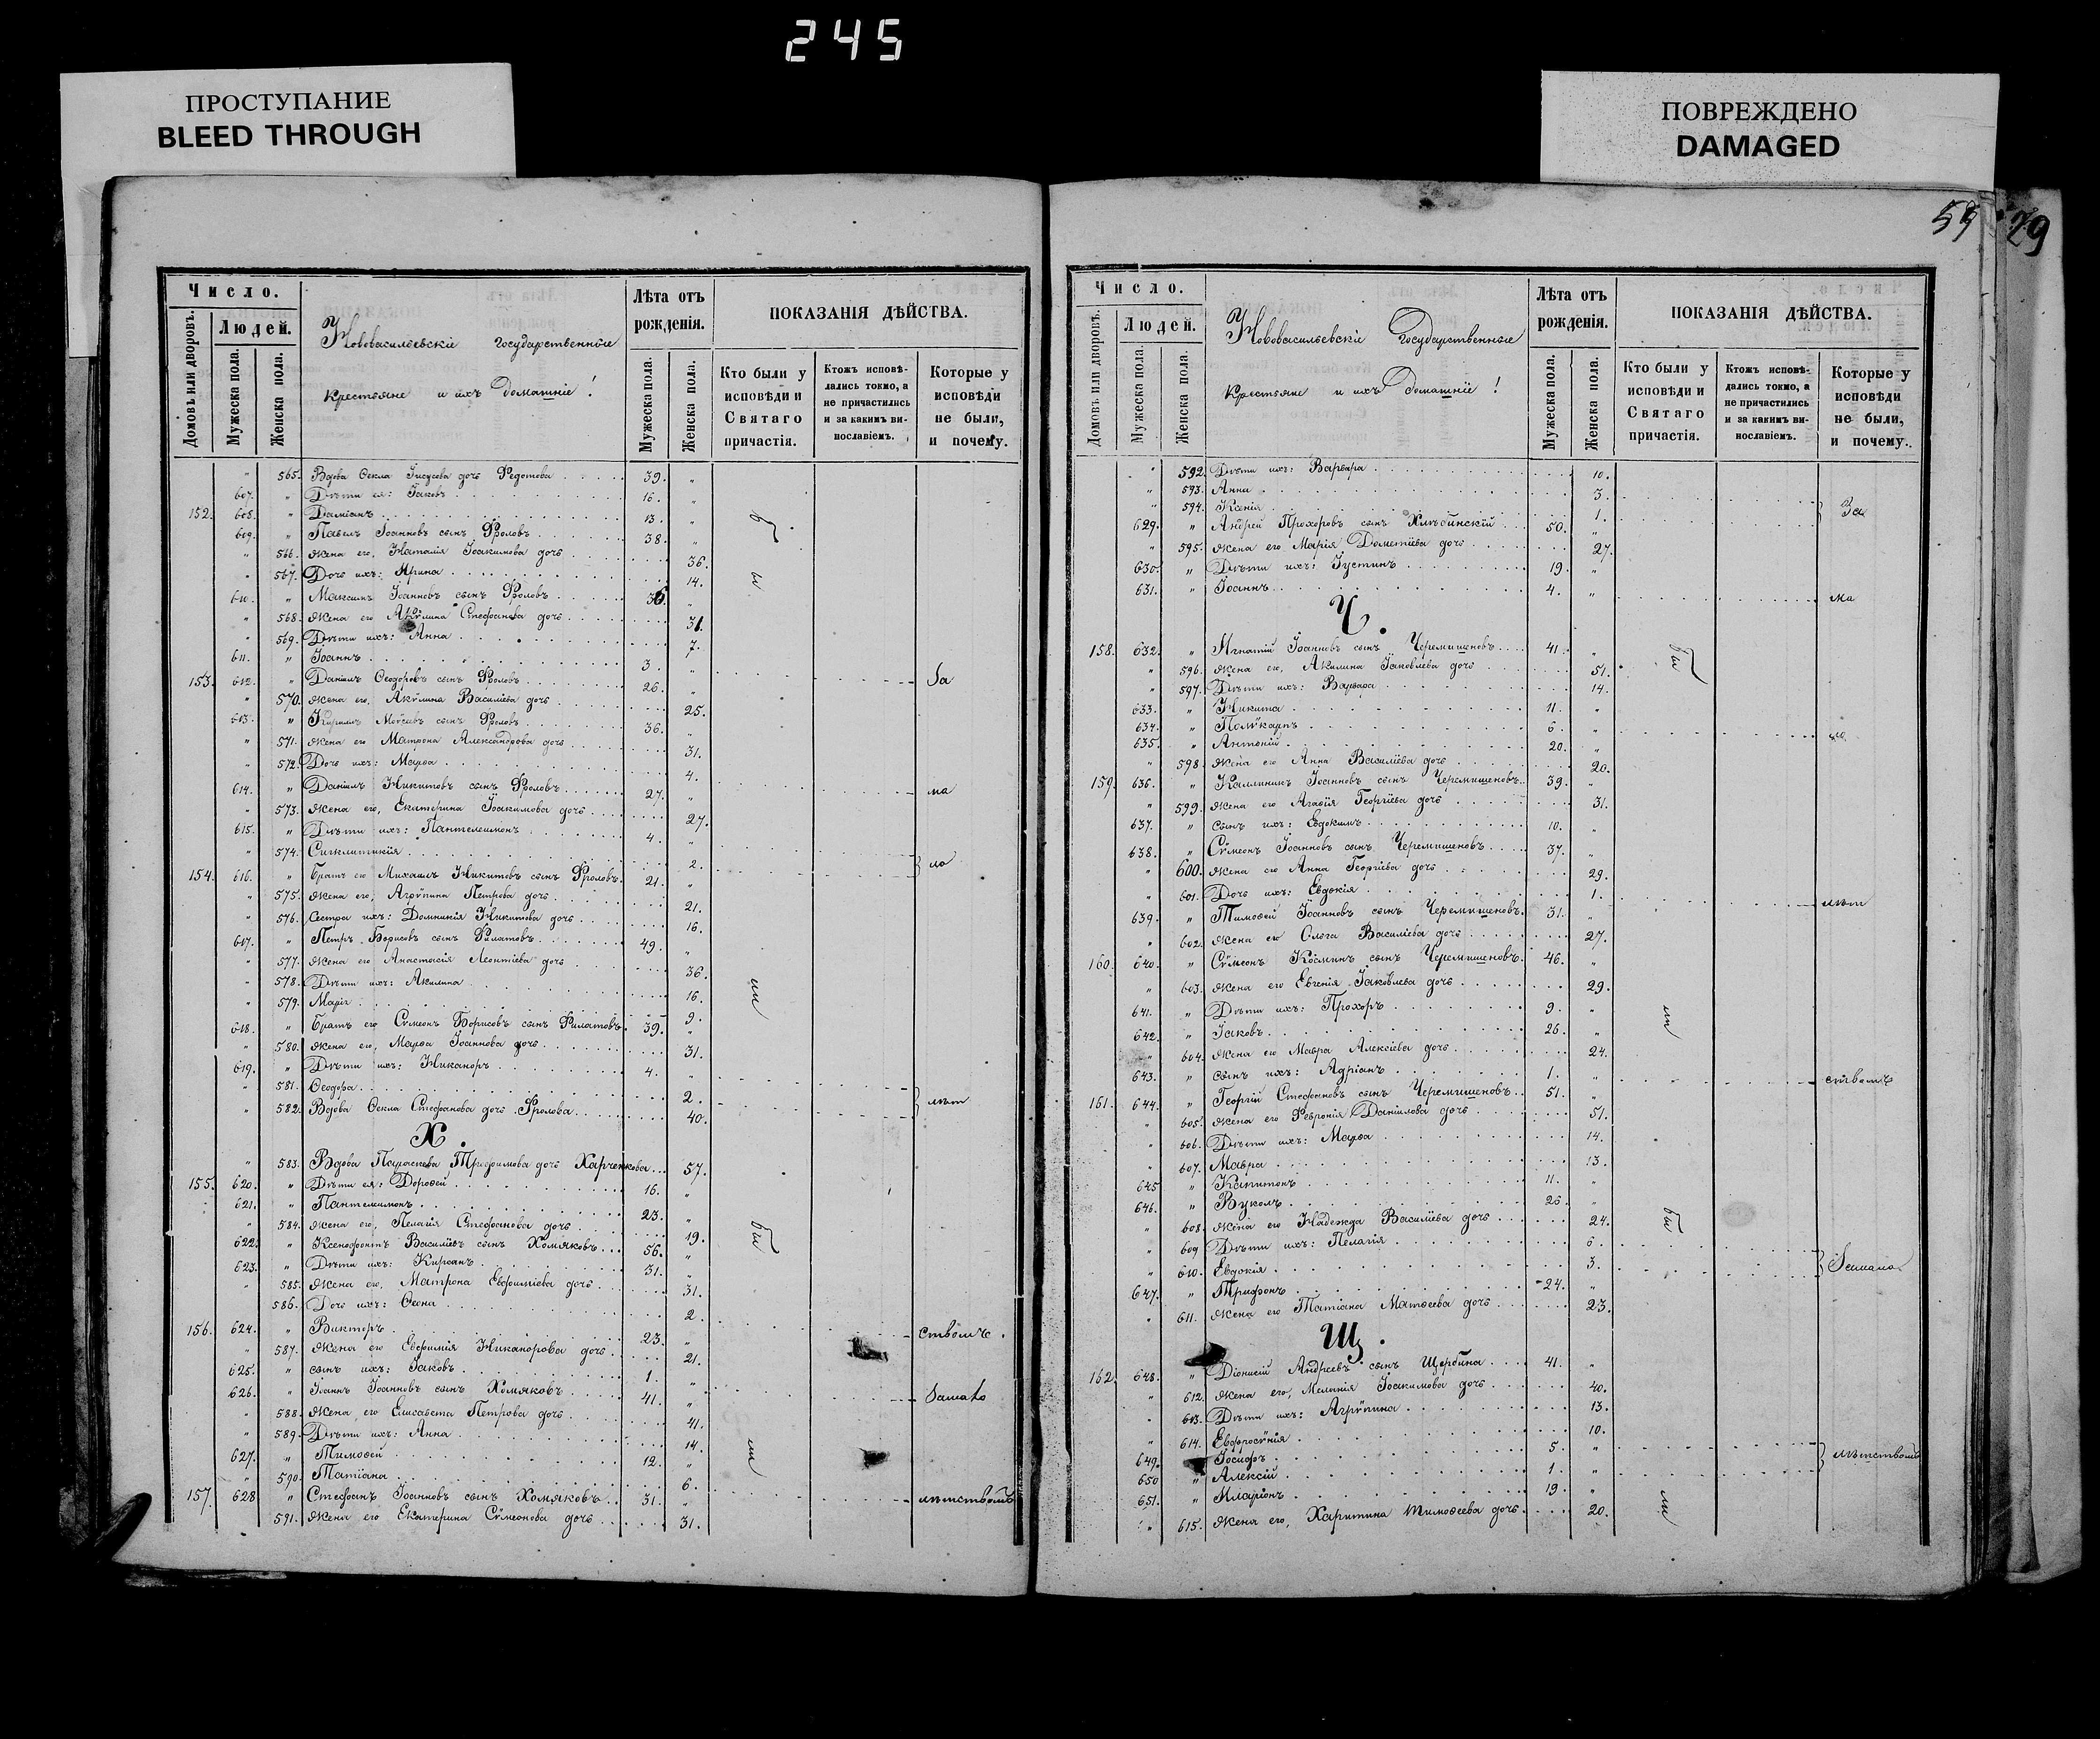 245
ПРОСТУПАНИЕ
BLEED THROUGH
ПОВРЕЖДЕНО
DAMAGED
Число.
Домовъ или дворовъ.
Людей.
Мужеска пола.
Женска пола.
Нововасильевскіе государственные
крестьяне и ихъ домашніе!
Лѣта отъ рожденія.
Мужеска пола.
Женска пола.
ПОКАЗАНІЯ ДѢЙСТВА.
Кто были у исповѣди и Святаго причастія.
Ктожъ исповѣдались токмо, а не причастились и за какимъ винословіемъ.
Которые у исповѣди не были, и почему.
" 565. Вдова Ѳекла Іисусева дочь Федотова 39. "
607. " Дѣти ея: Іаковъ 16. "
152. 608. " Даміанъ 13. "
609. " Павелъ Іоанновъ сынъ Фроловъ 38. "
" 566. Жена его, Наталія Іоакимова дочь 36.
" 567. Дочь ихъ: Ирина 14.
610. " Максимъ Іоанновъ сынъ Фроловъ 36. "
" 568. Жена его Акѵлина Стефанова дочь 31.
" 569. Дѣти ихъ: Анна 7.
611. " Іоаннъ 3. "
153. 612. " Даніилъ Ѳеодоровъ сынъ Фроловъ 26. " За
" 570. Жена его, Акѵлина Василіева дочь 25.
613. " Кириллъ Моѵсеевъ сынъ Фроловъ 36. "
" 571. Жена его Матрона Александрова дочь 31.
" 572. Дочь ихъ: Марѳа 4.
614. " Даніилъ Никитовъ сынъ Фроловъ 27. " ма
" 573. Жена его, Екатерина Іоакимова дочь 27.
615. " Дѣти ихъ: Пантелеимонъ 4. "
" 574. Сигклитикія 2. ло
154. 616. " Братъ его Михаилъ Никитовъ сынъ Фроловъ. 21. "
" 575. Жена его, Агрѵпина Петрова дочь 21.
" 576. Сестра ихъ: Домникія Никитова дочь 16.
617. " Петръ Борисовъ сынъ Филатовъ 49. "
" 577. Жена его Анастасія Леонтіева дочь 36.
" 578. Дѣти ихъ: Акилина 16.
" 579. Марія 9.
618. " Братъ его Сѵмеонъ Борисовъ сынъ Филатовъ. 39. "
" 580. Жена его, Марѳа Іоаннова дочь 31.
619. " Дѣти ихъ: Никаноръ 4. "
" 581. Ѳеодора 2. лѣт
" 582. Вдова Ѳекла Стефанова дочь Фролова 40.
Х.
" 583. Вдова Параскева Трифимова дочь Харченкова 57.
155. 620. " Дѣти ея: Дороѳей 16. "
621. " Пантелеимонъ 23. "
" 584. Жена его, Пелагія Стефанова дочь 19.
622. " Ксенофонтъ Василіевъ сынъ Хомяковъ 56. "
623. " Дѣти ихъ: Кирсанъ 31. "
" 585. Жена его, Матрона Евфиміева дочь 31.
586. Дочь ихъ: Ѳеона 2.
156. 624. " Викторъ 23. " ствомъ.
" 587. Жена его Евфимія Никанорова дочь 21.
625. " сынъ ихъ: Іаковъ 1. "
626. " Іоаннъ Іоанновъ сынъ Хомяковъ 41. "
" 588. Жена его Елисавета Петрова дочь 41.
" 589. Дѣти ихъ: Анна 14.
627. " Тимоѳей 12. "
" 590. Татіана 6.
157. 628 " Стефанъ Іоанновъ сынъ Хомяковъ 31. " лѣтствомъ
591. Жена его Екатерина Сѵмеонова дочь 31.
29
Число.
Домовъ или дворовъ.
Людей.
Мужеска пола.
Женска пола.
Нововасильевскіе Государственные
Крестьяне и ихъ Домашніе!
Лѣта отъ рожденія.
Мужеска пола.
Женска пола.
ПОКАЗАНІЯ ДѢЙСТВА.
Кто были у исповѣди и Святаго причастія.
Ктожъ исповѣдались токмо, а не причастились и за какимъ винословіемъ.
Которые у исповѣди не были, и почему.
" 592. Дѣти ихъ: Варвара 10.
" 593. Анна 3.
" 594. Ксенія 1. За
629. " Андрей Прохоровъ сынъ Хлѣбинскій 50. "
" 595. Жена его Марія Дометіева дочь 27.
630. " Дѣти ихъ: Іустинъ 19. "
631. " Іоаннъ 4. " ма
Ч.
158. 632. " Игнатій Іоанновъ сынъ Черемишеновъ 41. " бы
" 596. Жена его, Акилина Іаковлева дочь 51.
" 597. Дѣти ихъ: Варвара 14.
633. " Никита 11. "
634. " Полѵкарпъ 6. "
635. " Антоній 20. "
" 598. Жена его Анна Василіева дочь 20.
159. 636. " Каллиникъ Іоанновъ сынъ Черемишеновъ 39. "
" 599. Жена его Агаѳія Георгіева дочь 31.
637. " сынъ ихъ: Евдокимъ 10. "
638. " Сѵмеонъ Іоанновъ сынъ Черемишеновъ 37. "
" 600. Жена его Анна Георгіева дочь 29.
" 601. Дочь ихъ: Евдокія 1. лѣт
639. " Тимоѳей Іоанновъ сынъ Черемишеновъ. 31. "
" 602. Жена его Ольга Василіева дочь 27.
160. 640. " Сѵмеонъ Косминъ сынъ Черемишеновъ. 46. "
" 603. Жена его Евгенія Іаковлева дочь 29.
641. " Дѣти ихъ: Прохоръ 9. "
642. " Іаковъ 26. "
" 604. Жена его Мавра Алексіева дочь 24.
643. " сынъ ихъ: Адріанъ 1. " ствомъ
161. 644. " Георгій Стефановъ сынъ Черемишеновъ 51. "
" 605. Жена его Февронія Даніилова дочь 51.
" 606. Дѣти ихъ: Марѳа 14.
" 607. Мавра 13.
645 " Капитонъ 11. "
646. " Вуколъ 26. " бы
" 608. Жена его Надежда Василіева дочь 24.
" 609 Дѣти ихъ: Пелагія 6.
" 610. Евдокія 3.
647. " Трифонъ 24. "
" 611. Жена его Татіана Матѳеева дочь 23.
Щ.
162. 648. " Діонисій Андреевъ сынъ Щербина 41. "
" 612. Жена его, Меланія Іоакимова дочь 40.
" 613. Дѣти ихъ: Агрѵпина 13.
" 614. Евфросѵнія 10.
649. Іосифъ 5. " лѣтствомъ
650 " Алексій 1. "
651. " Иларіонъ 19. "
" 615. Жена его, Харитина Тимоѳеева дочь 20.